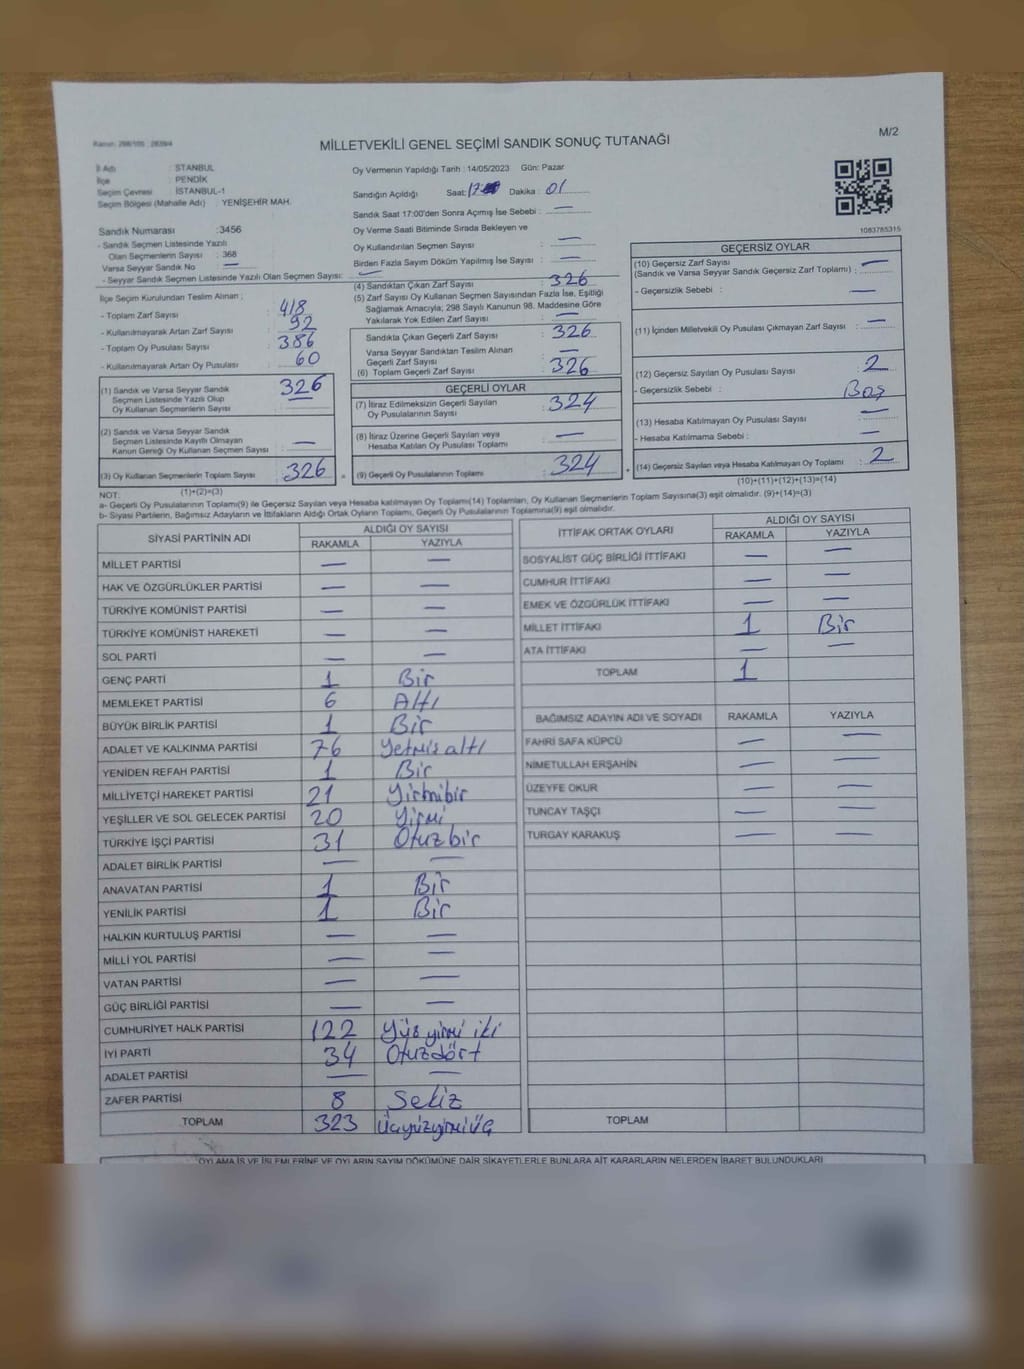 MİLLETVEKİLİ GENEL SEÇİMİ SANDIK SONUÇ TUTANAĞI
M/2
İl Adı : İSTANBUL
İlçe : PENDİK
Seçim Çevresi : İSTANBUL-1
Seçim Bölgesi (Mahalle Adı) : YENİŞEHİR MAH.
Sandık Numarası :3456
- Sandık Seçmen Listesinde Yazılı
Olan Seçmenlerin Sayısı : 368
Varsa Seyyar Sandık No —
- Seyyar Sandık Seçmen Listesinde Yazılı Olan Seçmen Sayısı: —
İlçe Seçim Kurulundan Teslim Alınan ;
- Toplam Zarf Sayısı : 418
- Kullanılmayarak Artan Zarf Sayısı : 92
- Toplam Oy Pusulası Sayısı : 386
- Kullanılmayarak Artan Oy Pusulası : 60
(1) Sandık ve Varsa Seyyar Sandık
Seçmen Listesinde Yazılı Olup
Oy Kullanan Seçmenlerin Sayısı : 326
(2) Sandık ve Varsa Seyyar Sandık
Seçmen Listesinde Kayıtlı Olmayan
Kanun Gereği Oy Kullanan Seçmen Sayısı : —
(3) Oy Kullanan Seçmenlerin Toplam Sayısı : 326
(1)+(2)=(3)
Oy Vermenin Yapıldığı Tarih : 14/05/2023 Gün: Pazar
Sandığın Açıldığı Saat: 17 Dakika : 01
Sandık Saat 17:00'den Sonra Açmış İse Sebebi : —
Oy Verme Saati Bitiminde Sırada Bekleyen ve
Oy Kullandırılan Seçmen Sayısı : —
Birden Fazla Sayım Döküm Yapılmış İse Sayısı : —
(4) Sandıktan Çıkan Zarf Sayısı : 326
(5) Zarf Sayısı Oy Kullanan Seçmen Sayısından Fazla İse, Eşitliği
Sağlamak Amacıyla; 298 Sayılı Kanunun 98. Maddesine Göre
Yakılarak Yok Edilen Zarf Sayısı : —
Sandıkta Çıkan Geçerli Zarf Sayısı : 326
Varsa Seyyar Sandıktan Teslim Alınan
Geçerli Zarf Sayısı : —
(6) Toplam Geçerli Zarf Sayısı : 326
GEÇERLİ OYLAR
(7) İtiraz Edilmeksizin Geçerli Sayılan
Oy Pusulalarının Sayısı : 324
(8) İtiraz Üzerine Geçerli Sayılan veya
Hesaba Katılan Oy Pusulası Toplamı : —
= (9) Geçerli Oy Pusulalarının Toplamı : 324
1083785315
GEÇERSİZ OYLAR
(10) Geçersiz Zarf Sayısı
(Sandık ve Varsa Seyyar Sandık Geçersiz Zarf Toplamı) : —
- Geçersizlik Sebebi : —
(11) İçinden Milletvekili Oy Pusulası Çıkmayan Zarf Sayısı : —
(12) Geçersiz Sayılan Oy Pusulası Sayısı : 2
- Geçersizlik Sebebi : Boş
(13) Hesaba Katılmayan Oy Pusulası Sayısı : —
- Hesaba Katılmama Sebebi : —
+ (14) Geçersiz Sayılan veya Hesaba Katılmayan Oy Toplamı : 2
(10)+(11)+(12)+(13)=(14)
NOT:
a- Geçerli Oy Pusulalarının Toplamı(9) ile Geçersiz Sayılan veya Hesaba katılmayan Oy Toplamı(14) Toplamları, Oy Kullanan Seçmenlerin Toplam Sayısına(3) eşit olmalıdır. (9)+(14)=(3)
b- Siyasi Partilerin, Bağımsız Adayların ve İttifakların Aldığı Ortak Oyların Toplamı, Geçerli Oy Pusulalarının Toplamına(9) eşit olmalıdır.
SİYASİ PARTİNİN ADI ALDIĞI OY SAYISI
RAKAMLA YAZIYLA
MİLLET PARTİSİ — —
HAK VE ÖZGÜRLÜKLER PARTİSİ — —
TÜRKİYE KOMÜNİST PARTİSİ — —
TÜRKİYE KOMÜNİST HAREKETİ — —
SOL PARTİ — —
GENÇ PARTİ 1 Bir
MEMLEKET PARTİSİ 6 Altı
BÜYÜK BİRLİK PARTİSİ 1 Bir
ADALET VE KALKINMA PARTİSİ 76 Yetmiş altı
YENİDEN REFAH PARTİSİ 1 Bir
MİLLİYETÇİ HAREKET PARTİSİ 21 Yirmibir
YEŞİLLER VE SOL GELECEK PARTİSİ 20 Yirmi
TÜRKİYE İŞÇİ PARTİSİ 31 Otuz bir
ADALET BİRLİK PARTİSİ — —
ANAVATAN PARTİSİ 1 Bir
YENİLİK PARTİSİ 1 Bir
HALKIN KURTULUŞ PARTİSİ — —
MİLLİ YOL PARTİSİ — —
VATAN PARTİSİ — —
GÜÇ BİRLİĞİ PARTİSİ — —
CUMHURİYET HALK PARTİSİ 122 Yüz yirmi iki
İYİ PARTİ 34 Otuzdört
ADALET PARTİSİ — —
ZAFER PARTİSİ 8 Sekiz
TOPLAM 323 Üçyüzyirmi üç
İTTİFAK ORTAK OYLARI ALDIĞI OY SAYISI
RAKAMLA YAZIYLA
SOSYALİST GÜÇ BİRLİĞİ İTTİFAKI — —
CUMHUR İTTİFAKI — —
EMEK VE ÖZGÜRLÜK İTTİFAKI — —
MİLLET İTTİFAKI 1 Bir
ATA İTTİFAKI — —
TOPLAM 1
BAĞIMSIZ ADAYIN ADI VE SOYADI RAKAMLA YAZIYLA
FAHRİ SAFA KÜPCÜ — —
NİMETULLAH ERŞAHİN — —
ÜZEYFE OKUR — —
TUNCAY TAŞÇI — —
TURGAY KARAKUŞ — —
TOPLAM
OYLAMA İŞ VE İŞLEMLERİNE VE OYLARIN SAYIM DÖKÜMÜNE DAİR ŞİKAYETLERLE BUNLARA AİT KARARLARIN NELERDEN İBARET BULUNDUKLARI